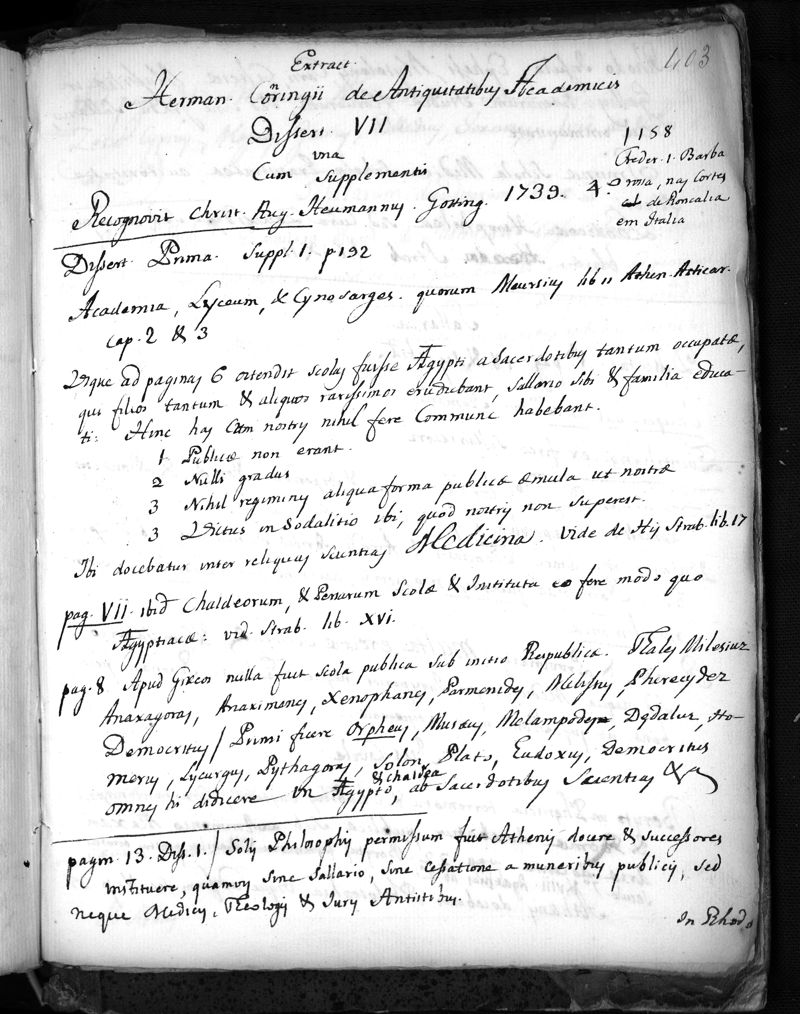 403
Extract.
Herman. Coñringii de Antiquitatibus Academicis
Dissert. VII
una
Cum Supplementis
Recognovit Christ. Aug. Heumannus. Gotting. 1739. 4.º
1158
Freder. 1. Barba
rosa, nas Cortes
de Roncalia
em Italia
Dissert. Prima. Suppl. 1. p 192
Academia, Lyceum, & Cynosarges. quorum Meursius lib 11 Athen. Atticar.
cap. 2 & 3
Usque ad paginas 6 ostendit scolas fuisse Ægypti a Sacerdotibus tantum occupatæ,
qui filios tantum & aliquos rarissimos erudubant, sallario sibi & familia educa-
ti: Hinc has Cum nostris nihil fere Commune habebant.
1 Publicæ non erant.
2 Nulli gradus
3 Nihil regiminis aliqua forma publicæ æmula ut nostræ
3 Victus in Sodalitio ibi, quod nostris non superest.
Ibi docebatur inter reliquas scientias Medicina. Vide de His Strab. lib. 17
pag. VII. ibid Chaldeorum, & Persarum Scolæ & Instituta eo fere modo quo
Ægyptiacæ: vid. Strab. lib. XVI.
pag. 8 Apud Græcos nulla fuit scola publica sub initio Reipublicæ. Thales Milesius
Anaxagoras, Anaximenes, Xenophanes, Parmenides, Melissus, Pherecydez
Democritus / Primi fuere Orpheus, Musæus, Melampodes, Dædalus, Ho-
merus, Lycurgus, Pythagoras, Solon, Plato, Eudoxus, Democritus
& chaldea
omnes hi didicere in Ægypto, ab Sacerdotibus Scientias &
pagin 13. Diss. 1. / Solis Philosophis permissum fuit Athenis docere & successores
instituere, quamvis sine sallario, sine cessatione a muneribus publicis, sed
neque Medicis, Theologis & Juris Antistibus.
In Rhodo